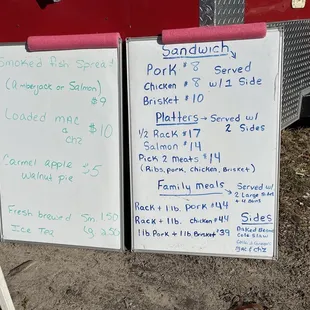 Smoked fish Spread
(Amberjack or Salmon)
$9
Loaded mac
&
chz
$10
Carmel apple
Walnut pie
$5
Fresh brewed Sm. 1.50
Ice Tea Lg 2.50
Sandwich
Pork $8 Served
Chicken $8 w/ 1 Side
Brisket $10
Platters → Served w/
2 Sides
1/2 Rack $17
Salmon $14
Pick 2 Meats $14
(Ribs, pork, chicken, Brisket)
Family meals → Served w/
2 Large Sides
Rack + 1lb. pork $44
Rack + 1lb. chicken $44
1lb Pork + 1lb Brisket $39
Sides
Baked Beans
Cole Slaw